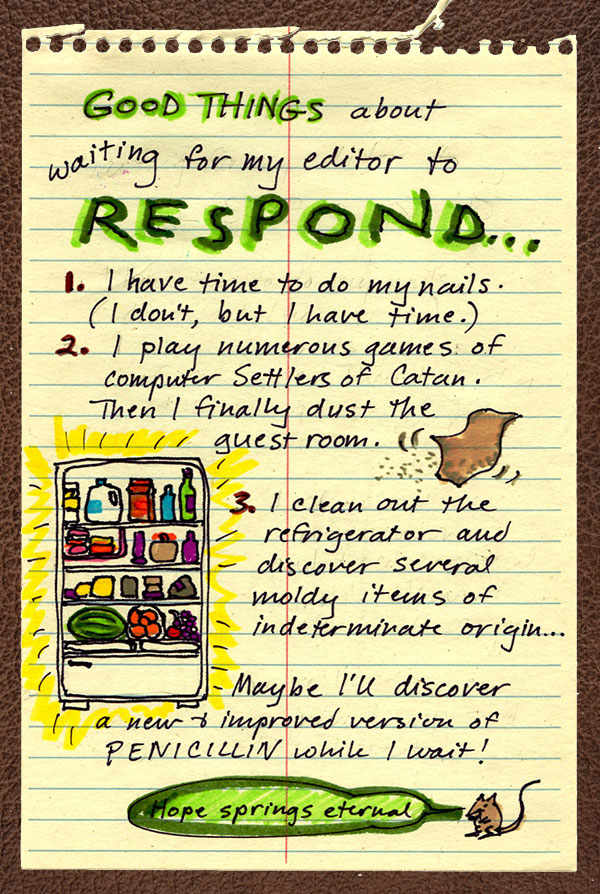 GOOD THINGS about
waiting for my editor to
RESPOND...
1. I have time to do my nails.
(I don't, but I have time.)
2. I play numerous games of
computer Settlers of Catan.
Then I finally dust the
guest room.
3. I clean out the
refrigerator and
discover several
moldy items of
indeterminate origin...
Maybe I'll discover
a new & improved version of
PENICILLIN while I wait!
Hope springs eternal